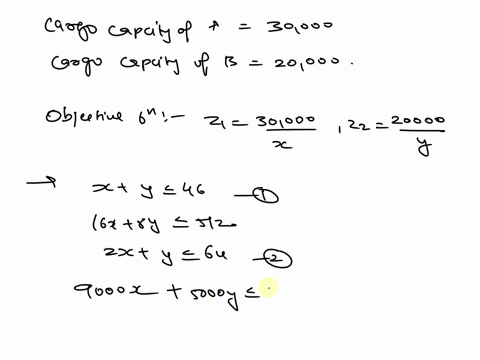 Cargo capcity of A = 30,000
Cargo capacity of B = 20,000.
Objective fⁿ:- Z1 = 30,000/x , Z2 = 20000/y
→ x + y ≤ 46 —①
16x + 8y ≤ 512
2x + y ≤ 64 —②
9000x + 5000y ≤